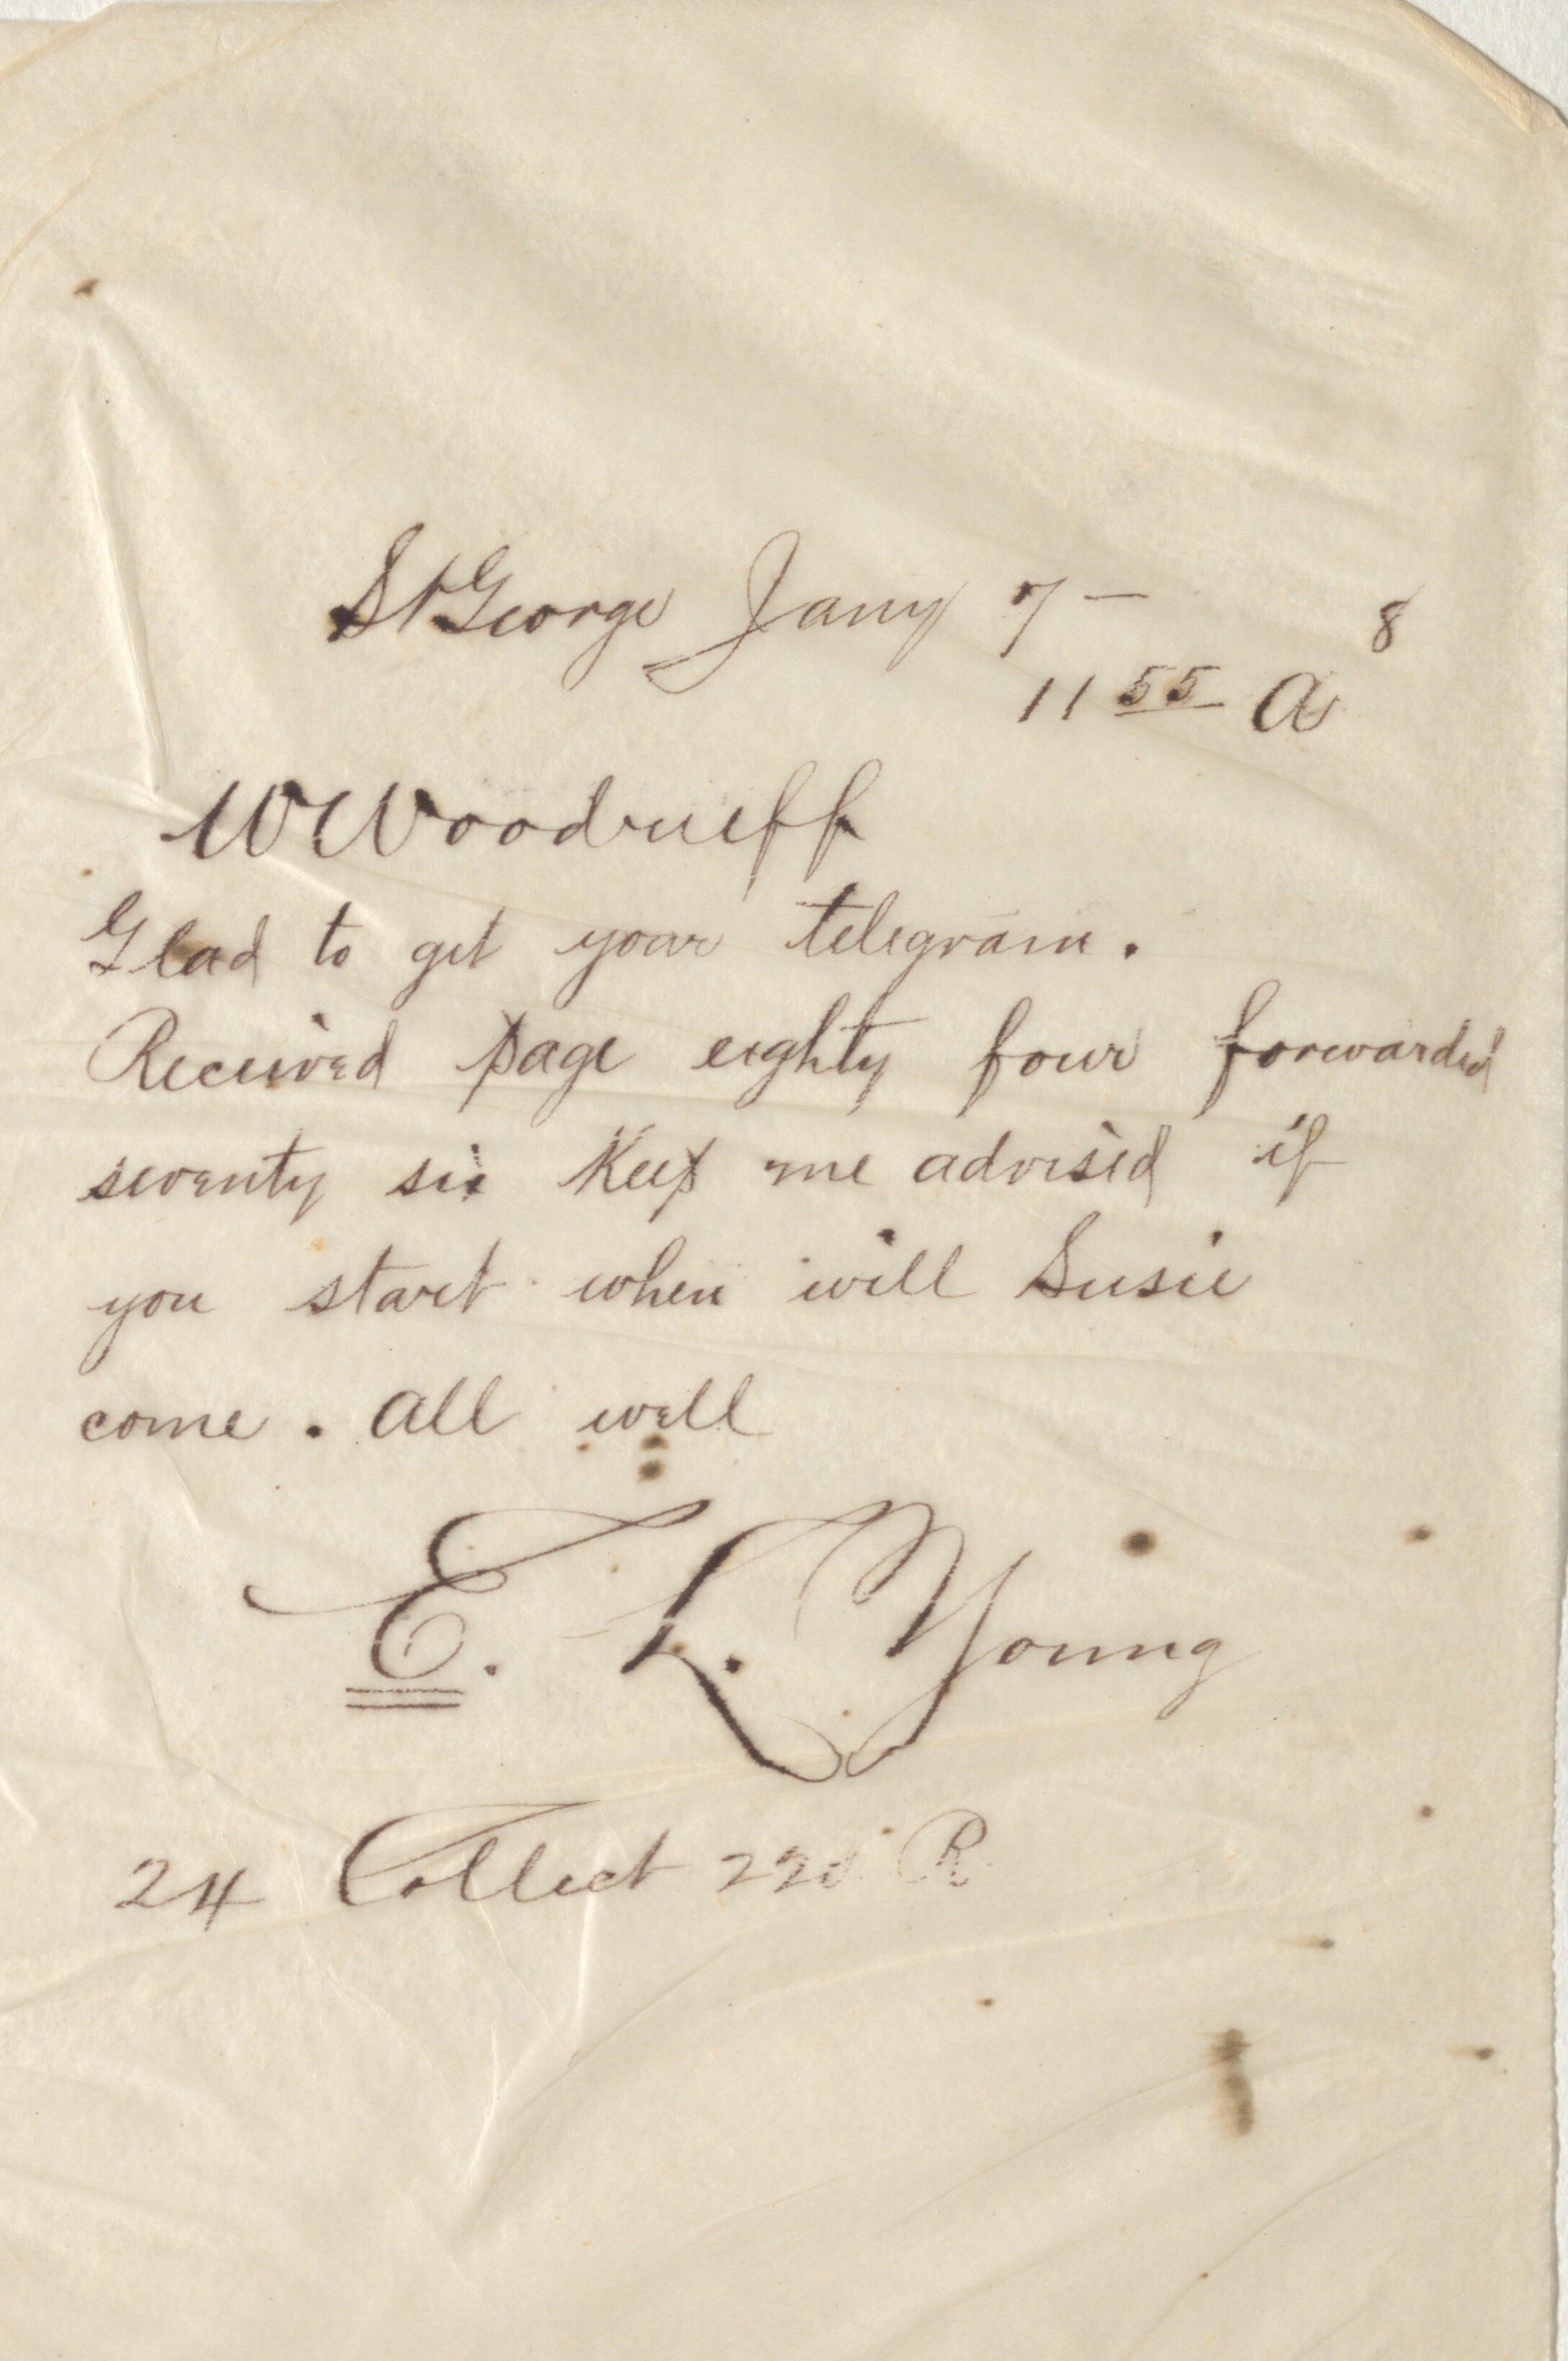 St George Jany 7 — 8
11 55 A
W Woodruff
Glad to get your telegram.
Received page eighty four forwarded
seventy six Keep me advised if
you start when will Susie
come. All well
E. L. Young
24 Collect R